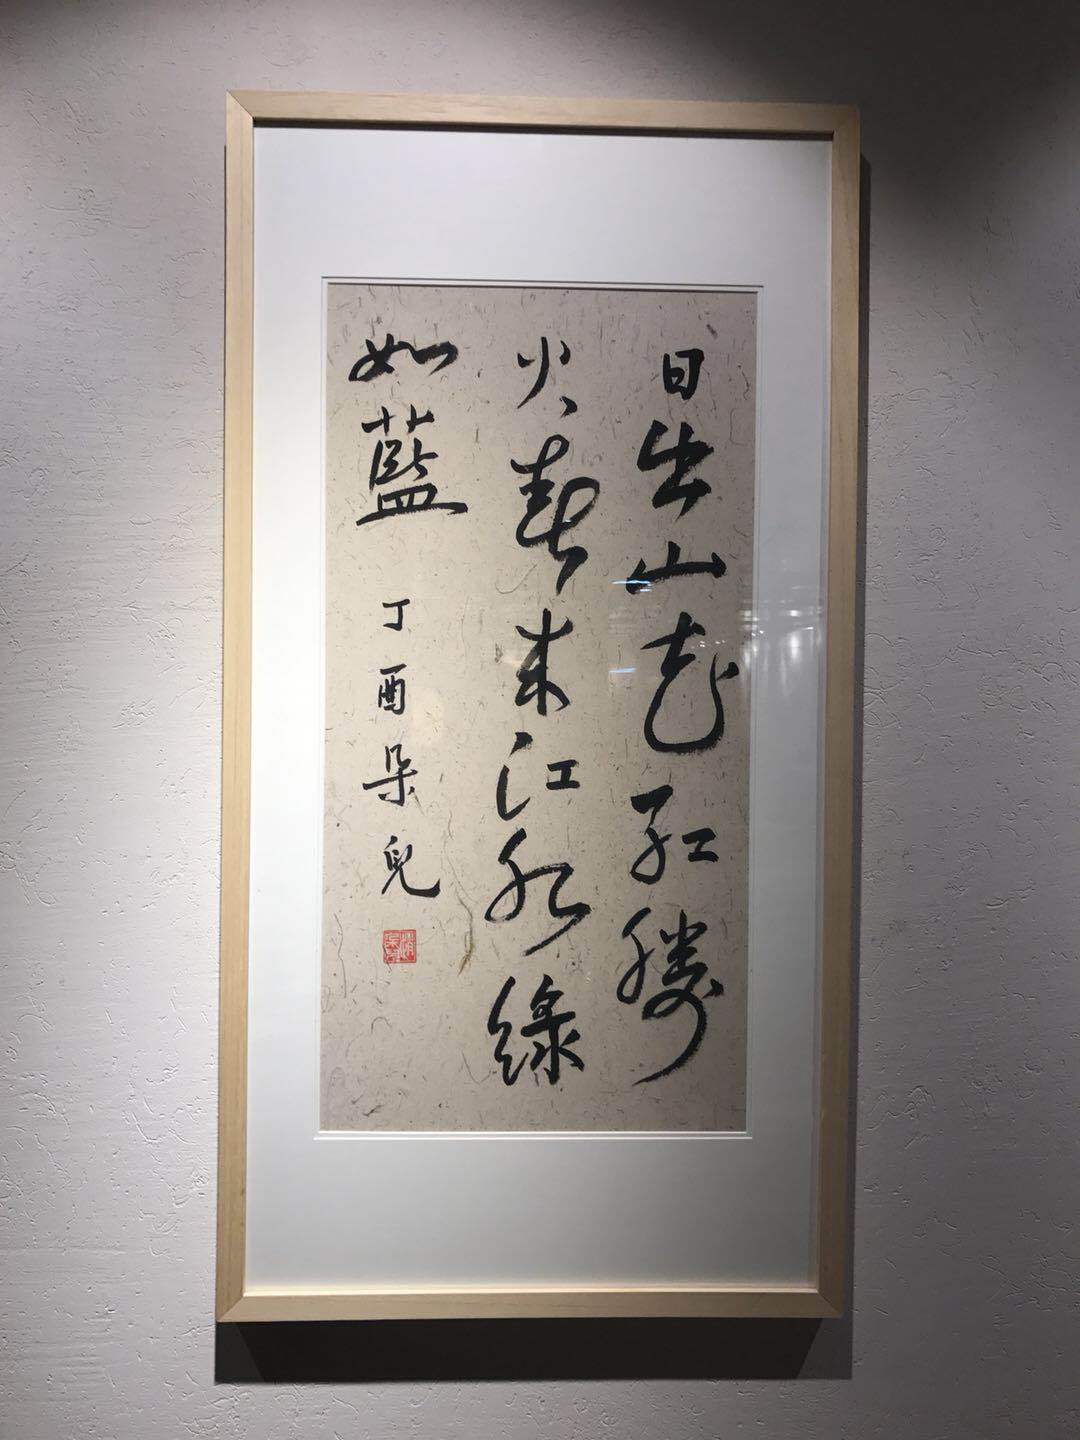 日出山花紅勝
火春来江水綠
如藍
丁酉朵兒